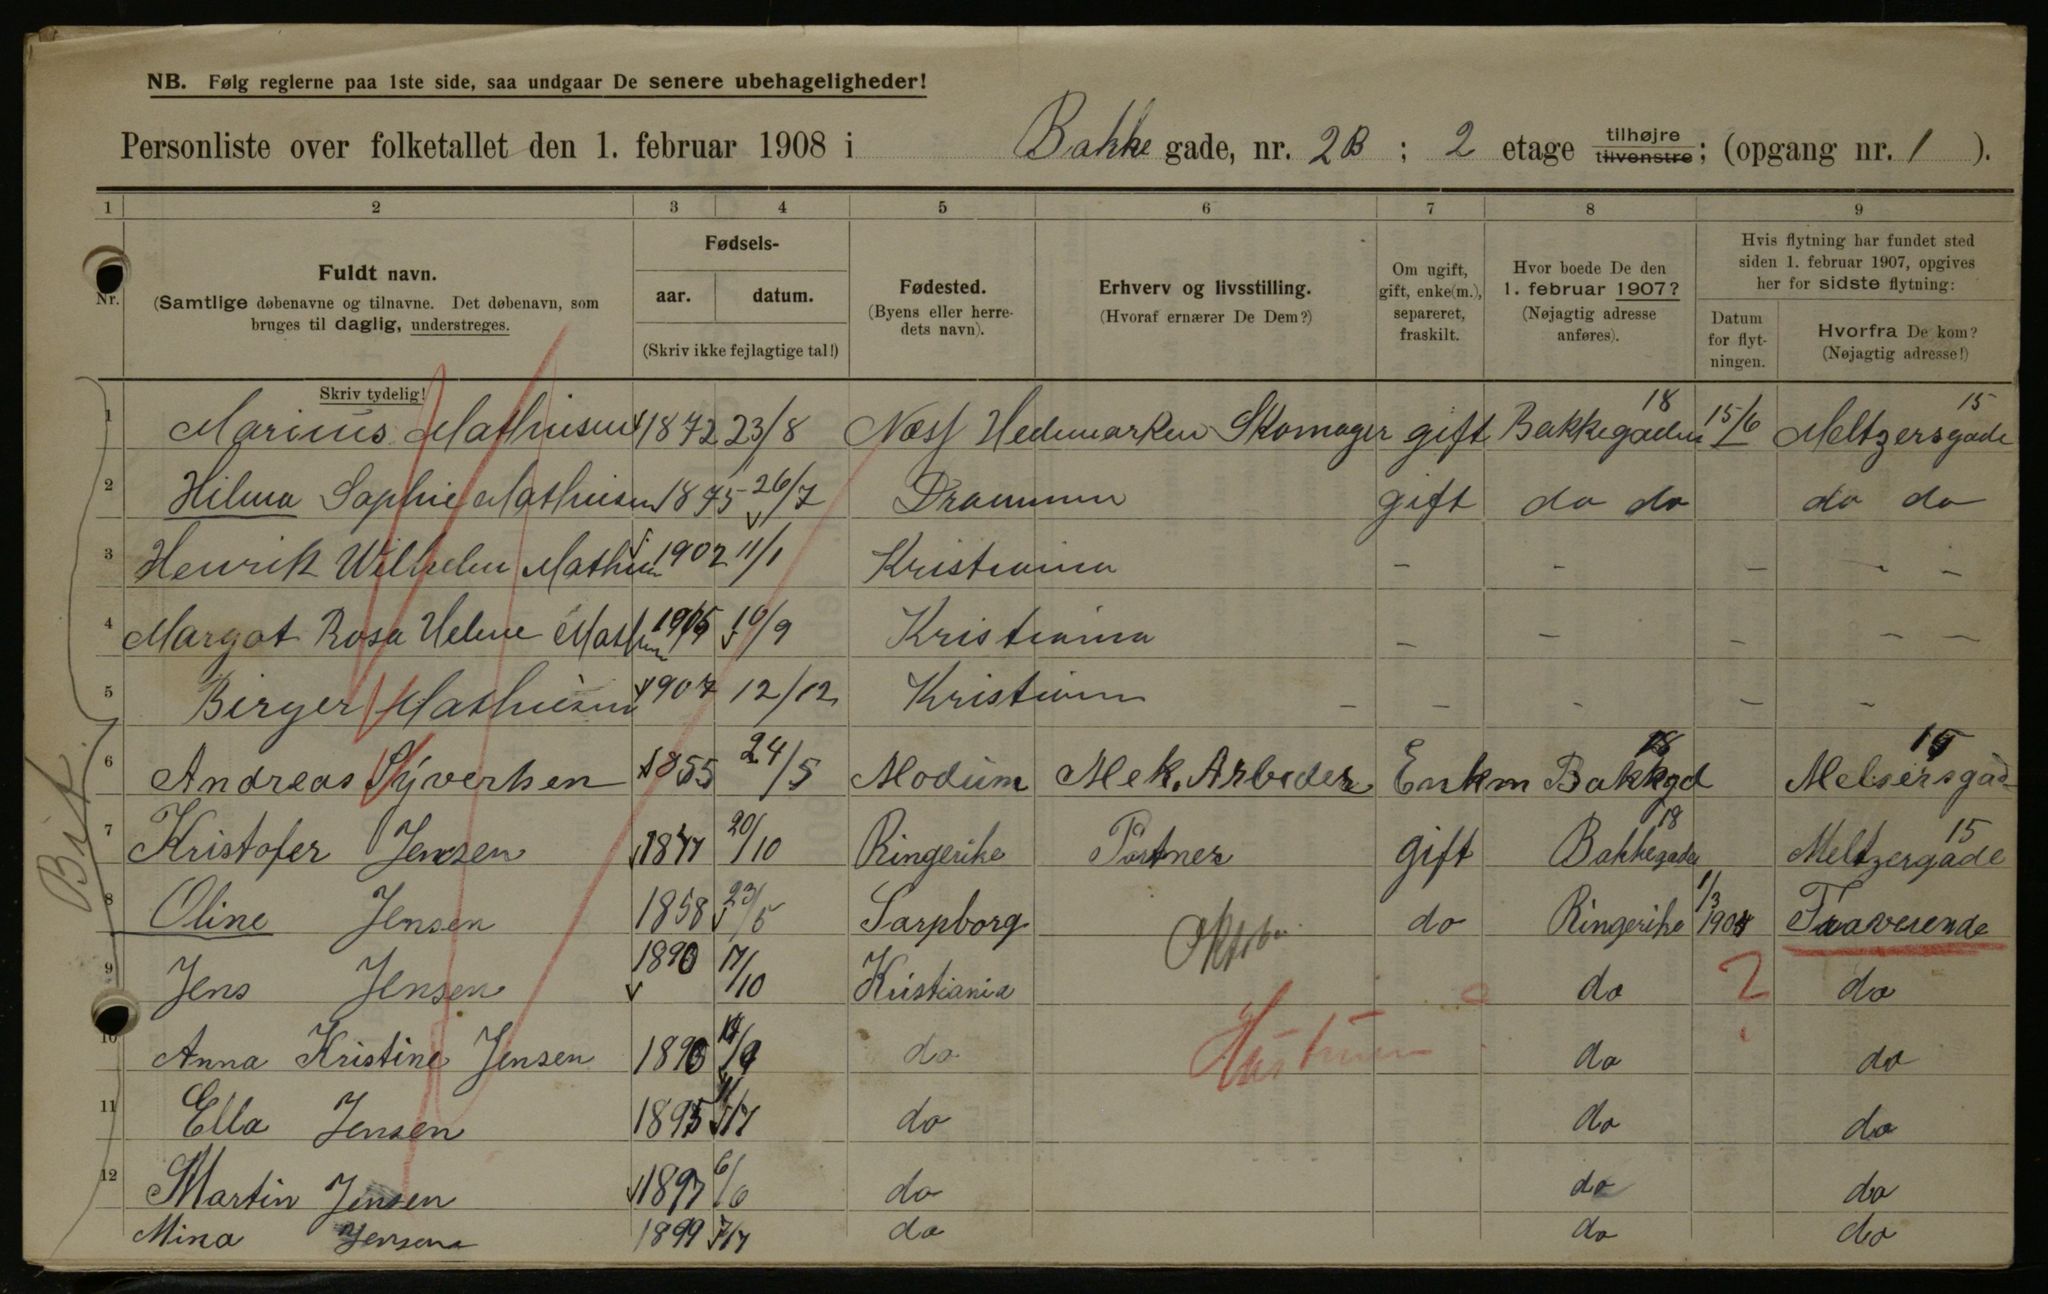 NB. Følg reglerne paa 1ste side, saa undgaar De senere ubehageligheder!
Personliste over folketallet den 1. februar 1908 i Bakke gade, nr. 2B ; 2 etage tilhøjre tilvenstre; (opgang nr. 1 ).
1 2 3 4 5 6 7 8 9
Nr.
Fuldt navn.
(Samtlige døbenavne og tilnavne. Det døbenavn, som
bruges til daglig, understreges.
Skriv tydelig!
Fødsels-
aar. datum.
(Skriv ikke fejlagtige tal!)
Fødested.
(Byens eller herre-
dets navn).
Erhverv og livsstilling.
(Hvoraf ernærer De Dem?)
Om ugift,
gift, enke(m.),
separeret,
fraskilt.
Hvor boede De den
1. februar 1907?
(Nøjagtig adresse
anføres).
Hvis flytning har fundet sted
siden 1. februar 1907, opgives
her for sidste flytning:
Datum
for flyt-
ningen.
Hvorfra De kom?
(Nøjagtig adresse!)
1 Marius Mathiesen 1872 23/8 Næs Hedemarken Skomager gift Bakkegaden 18 15/6 Meltzersgade 15
2 Hilma Sophie Mathiesen 1875 26/7 Drammen gift do do do do
3 Henrik Wilhelm Mathiesen 1902 11/1 Kristiania – – – – –
4 Margot Rosa Helene Mathiesen 1905 10/9 Kristiania – – – –
5 Birger Mathiesen 1907 12/12 Kristiania – – – – –
6 Andreas Syvertsen 1855 24/5 Modum Mek. Arbeider Enkm Bakkgd 18 Melsersgade 15
7 Kristofer Jensen 1847 20/10 Ringerike Portner gift Bakkegaden 18 Meltzergade 15
8 Oline Jensen 1858 23/5 Sarpborg do Ringerike 1/3 Taavesende
9 Jens Jensen 1890 17/10 Kristiania do ? do
10 Anna Kristine Jensen 1890 do do do
11 Ella Jensen 1895 do do do
12 Martin Jensen 1897 6/6 do do do
Mina Jensen 1899 7/7 do do do